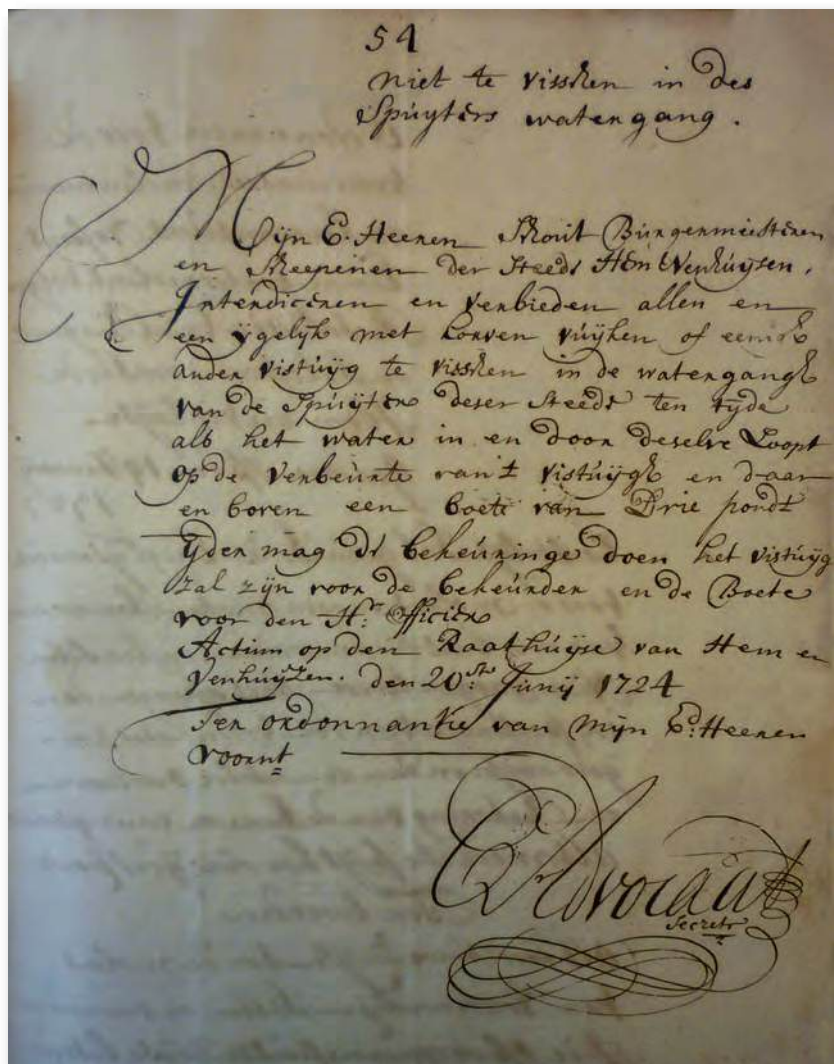 54
niet te visschen in des
Spuyters watergang.
Mijn E. Heeren Schout Burgermeesteren
en Scheepenen der Steede Hem Venhuysen.
Interdiceren en verbieden allen en
een ygelyk met korven vuyken of eenich
ander vistuyg te visschen in de watergangh
van de Spuyter deser Steede ten tyde
als het water in en door deselve Loopt
op de verbeurte van't vistuygh en daar
en boven een boete van Drie pondt
Yder mag de bekeuringe doen het vistuyg
zal zijn voor de bekeurder en de Boete
voor den Hr. Officier
Actum op den Raathuyse van Hem en
Venhuyzen. den 20ste Junij 1724
Ter ordonnantie van mijn Ed. Heeren
voornt
Advocaat
Secrets